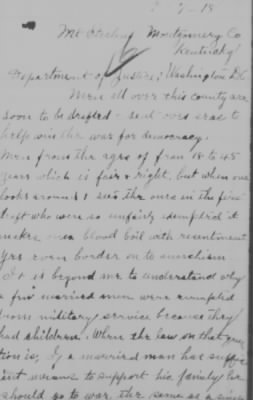 7-18
Mt Sterling Montgomery Co
Kentucky
Department of Justice, Washington D.C.
Men all over this county are
soon to be drafted & sent over seas to
help win the war for democracy.
Men from the ages of from 18 to 45
years which is fair & right, but when one
looks around & sees the ones in the first
draft who were so unfairly exempted it
makes ones blood boil with resentment
yes even border on to anarchism.
It is beyond me to understand why
a few married men were exempted
from military service because they
had children. When the law on that ques
tion is, If a married man has suffic
ient means to support his family he
should go to war, the same as a single